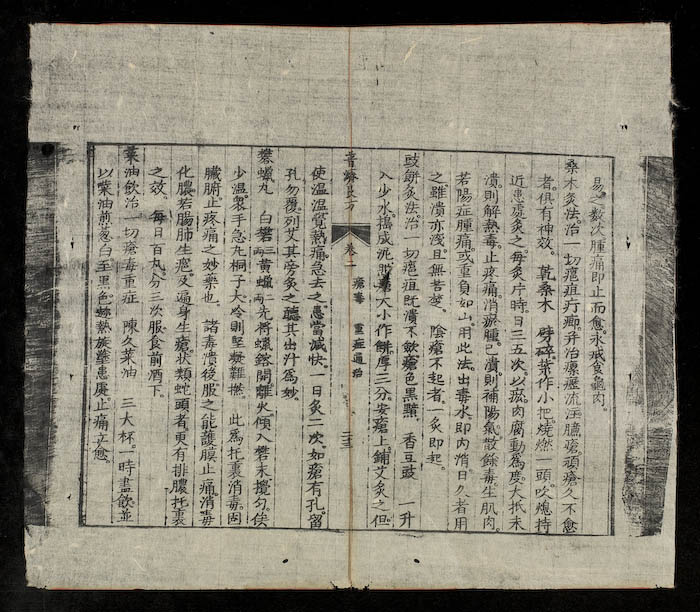 易之數次腫痛即止而愈永戒食龜肉
桑木灸法治一切瘡疽疔癤并治瘰癧流注臁瘡頑瘡久不愈
者俱有神效 乾桑木 劈碎葉作小把燒燃一頭吹熄持
近患處灸之每灸片時日三五次以瘀肉腐動為度大抵未
潰則解熱毒止疼痛消瘀腫已潰則補陽氣散餘毒生肌肉
若陽症腫痛或重負如山用此法出毒水即內消日久者用
之雖潰亦淺且無苦楚 陰瘡不起者一灸即起
豉餅灸法治一切瘡疽既潰不斂瘡色黑黯 香豆豉 一升
入少水搗成泥 大小作餅厚三分安瘡上鋪艾灸之但
使溫溫覺熱痛急去之患當減快一日灸二次如瘡有孔留
孔勿覆列艾其旁灸之聽其出汁為妙
普濟良方 卷二 瘡毒 重症通治 三三
礬蠟丸 白礬三兩黃蠟二兩先將蠟鎔開離火傾入礬末攪勻俟
少溫眾手急丸桐子大冷則堅凝難撚 此為托裏消毒固
臟腑止疼痛之妙藥也 諸毒潰後服之能護膜止痛消毒
化膿若腸肺生瘡及遍身生瘡狀類蛇頭者更有排膿托裏
之效每日百丸分三次服食前酒下
菜油飲治一切瘡毒重症 陳久菜油 三大杯一時盡飲並
以菜油煎葱白至黑色趁熱旋難患處止痛立愈